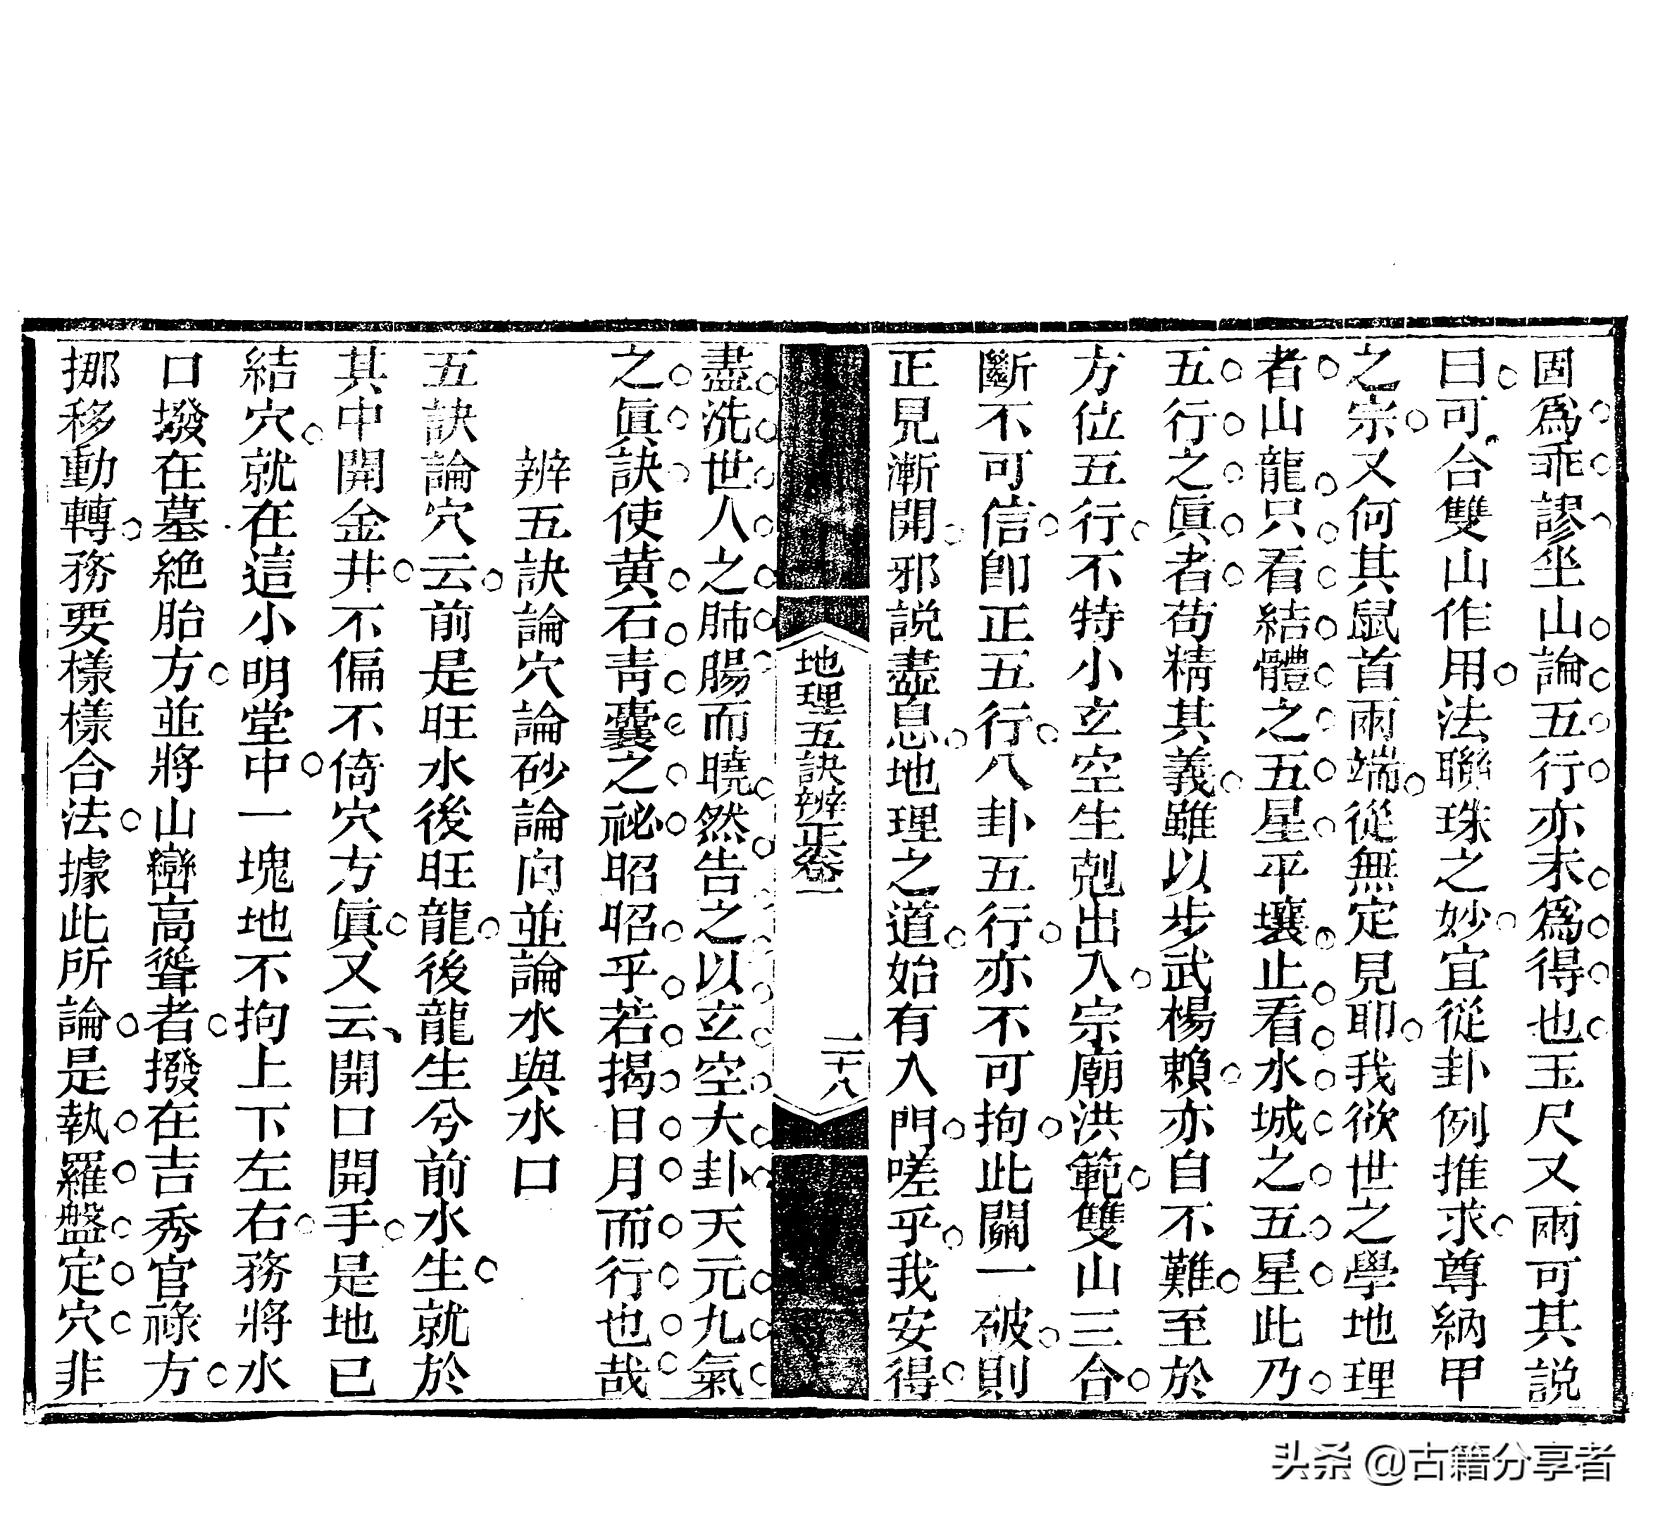 固為乖謬坐山論五行亦未為得也玉尺又兩可其說
曰可合雙山作用法聯珠之妙宜從卦例推求尊納甲
之宗又何其鼠首兩端從無定見耶我欲世之學地理
者山龍只看結體之五星平壤止看水城之五星此乃
五行之眞者苟精其義雖以步武楊賴亦自不難至於
方位五行不特小玄空生剋出入宗廟洪範雙山三合
斷不可信卽正五行八卦五行亦不可拘此關一破則
正見漸開邪說盡息地理之道始有入門嗟乎我安得
地理五訣辨正卷一
二十八
盡洗世人之肺腸而曉然告之以玄空大卦天元九氣
之眞訣使黃石靑囊之祕昭昭乎若揭日月而行也哉
辨五訣論穴論砂論向並論水與水口
五訣論穴云前是旺水後旺龍後龍生兮前水生就於
其中開金井不偏不倚穴方眞又云開口開手是地已
結穴就在這小明堂中一塊地不拘上下左右務將水
口撥在墓絕胎方並將山巒高聳者撥在吉秀官祿方
挪移動轉務要樣樣合法據此所論是執羅盤定穴非
头条 @古籍分享者